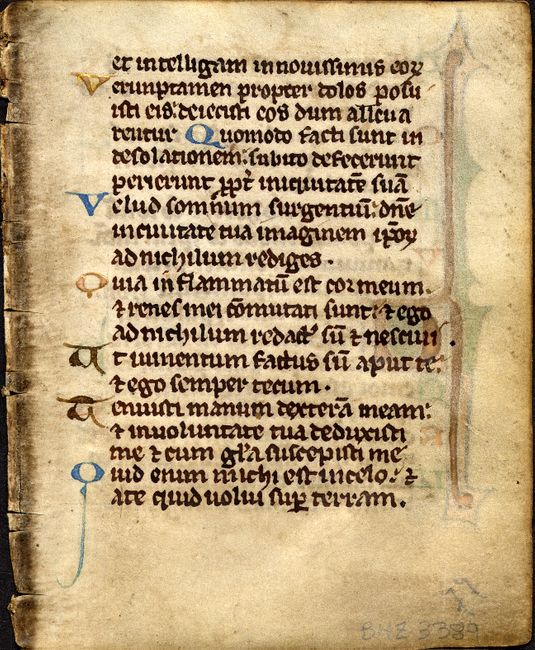 et intelligam in novissimis eoꝝ
Verunptamen propter dolos posu
isti eis: deiecisti eos dum alleva
rentur Quomodo facti sunt in
desolationem: subito defecerunt
perierunt ꝓpt̄ iniquitatē suā
Velud somnium surgentiū: dn̄e
in civitate tua imaginem ip̄oꝝ
ad nichilum rediges.
Quia inflammatū est cor meum.
⁊ renes mei cōmutati sunt: ⁊ ego
ad nichilum redact᷒ sū ⁊ nescivi.
At iumentum factus sū aput te:
⁊ ego semper tecum.
Tenuisti manum dexterā meam:
⁊ in voluntate tua deduxisti
me ⁊ cum gl̄a suscepisti me
Quid enim michi est in celo: ⁊
a te quid volui suꝑ terram.
BHZ 3389